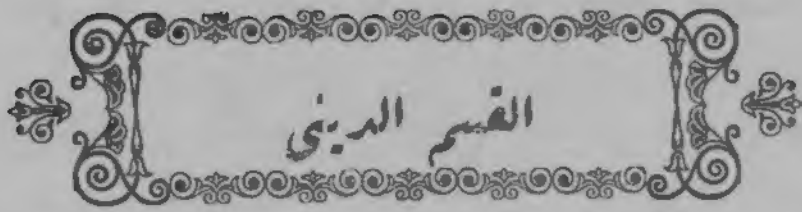 القسم الدينى